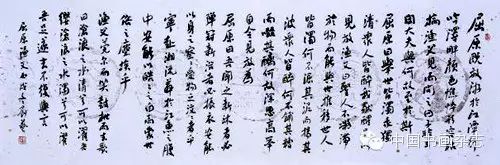 屈原既放游於江潭行
吟澤畔顏色憔悴形容枯
槁漁父見而問之曰子非三閭
大夫與何故至於斯屈原
曰舉世皆濁我獨
清衆人皆醉我獨醒是以
見放漁父曰聖人不凝滯
於物而能與世推移世人
皆濁何不淈其泥而揚其
波衆人皆醉何不餔其糟
而歠其醨何故深思高舉
自令見放為
屈原曰吾聞之新沐者必
彈冠新浴者必振衣安能
以身之察察受物之汶汶者乎
寧赴湘流葬於江魚之腹
中安能以皓皓之白而蒙世
俗之塵埃乎
漁父莞爾而笑鼓枻而去歌
曰滄浪之水清兮可以濯吾
纓滄浪之水濁兮可以濯
吾足遂去不復與言
屈原漁父
中国书画杂志